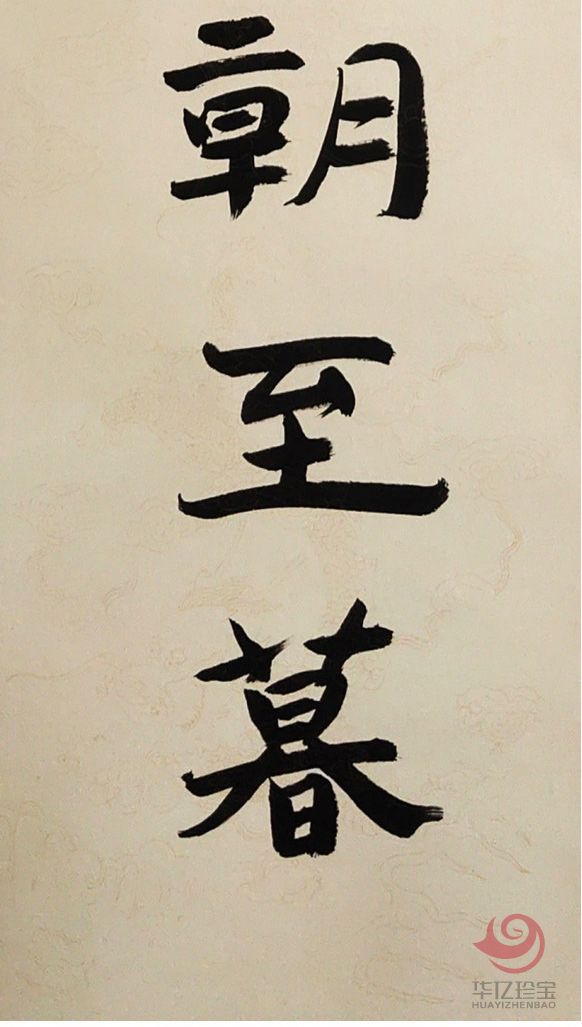 朝
至
暮
华亿珍宝
HUAYIZHENBAO